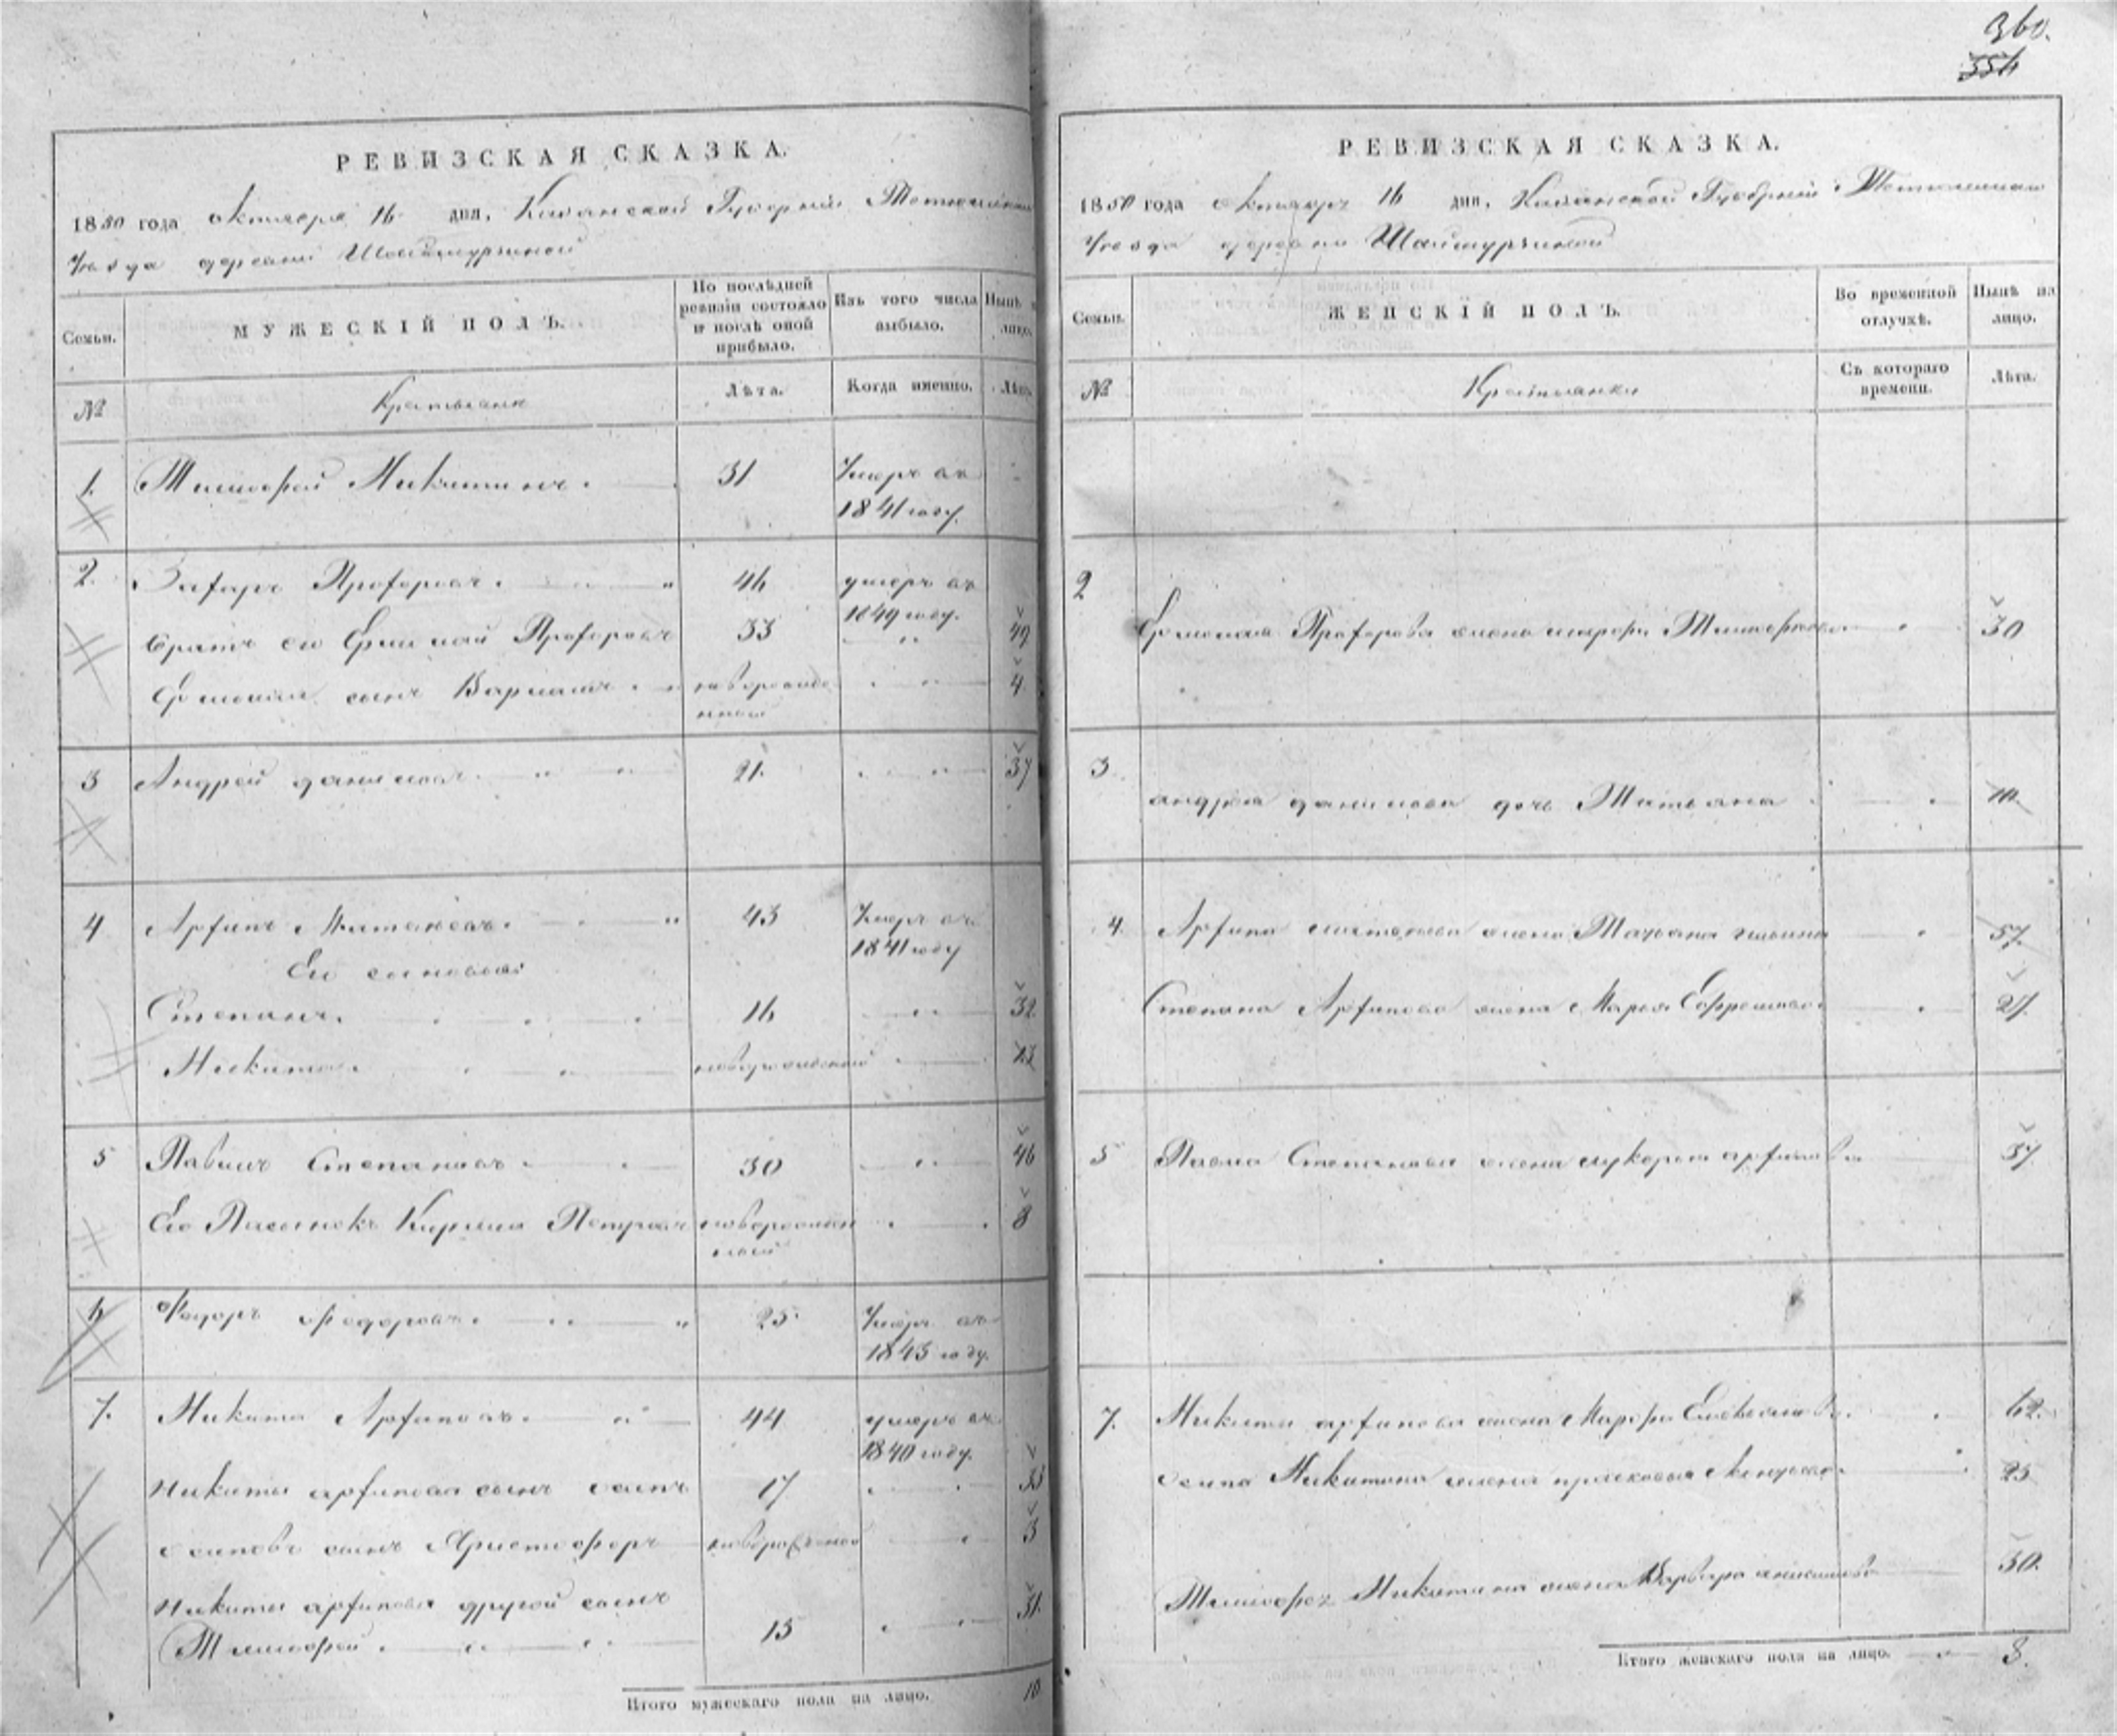 360.
354
РЕВИЗСКАЯ СКАЗКА.
1850 года октября 16 дня, Казанской Губернии Тетюшскаго
Уезда деревни Шаймурзиной
Семьи. МУЖЕСКІЙ ПОЛЪ. По послѣдней ревизіи состояло и послѣ оной прибыло. Изъ того числа выбыло. Нынѣ на лицо.
№ Крестьяне Лѣта. Когда именно. Лѣта.
1. Тимофей Никитинъ. 31 Умеръ въ
1841 году.
2. Захаръ Прохоровъ. 46 умеръ въ
1849 году.
братъ ео Ермолай Прохоровъ 33 49
Ермолая сынъ Варламъ. новорожде 4
нной
3 Андрей даниловъ 21. 37
4 Архипъ 43 Умеръ въ
1841 году
Ео сыновья
Степанъ. 16 32
Никита. новорожденной 13
5 Павилъ Степановъ 30 46
Ео Пасынокъ Кирило Петровъ новорожден 8
ной
6 Федоръ Федоровъ. 25 Умеръ въ
1843 году.
7. Никита Архиповъ. 44 умеръ въ
1840 году.
Никиты архипова сынъ осипъ 17 33
осиповъ сынъ Христофоръ новорожденой 3
Никиты архипова другой сынъ
Тимофей. 15 31.
Итого мужескаго пола на лицо. 10
РЕВИЗСКАЯ СКАЗКА.
1850 года октября 16 дня, Казанской Губернии Тетюшскаго
Уезда деревни Шаймурзиной
Семьи. ЖЕНСКІЙ ПОЛЪ. Во временной отлучкѣ. Нынѣ на лицо.
№ Крестьянки Съ котораго времени. Лѣта.
2
Ермолая Прохорова жена 30
3
андрея данилова дочь Татьяна 10.
4. Архипа жена 57.
Степана Архипова жена Марья 27.
5 Павла Степанова жена 37
7. Никиты архипова жена Марфа 62.
осипа Никитина жена 25
Тимофея Никитина жена Варвара 30.
Итого женскаго пола на лицо. 8.